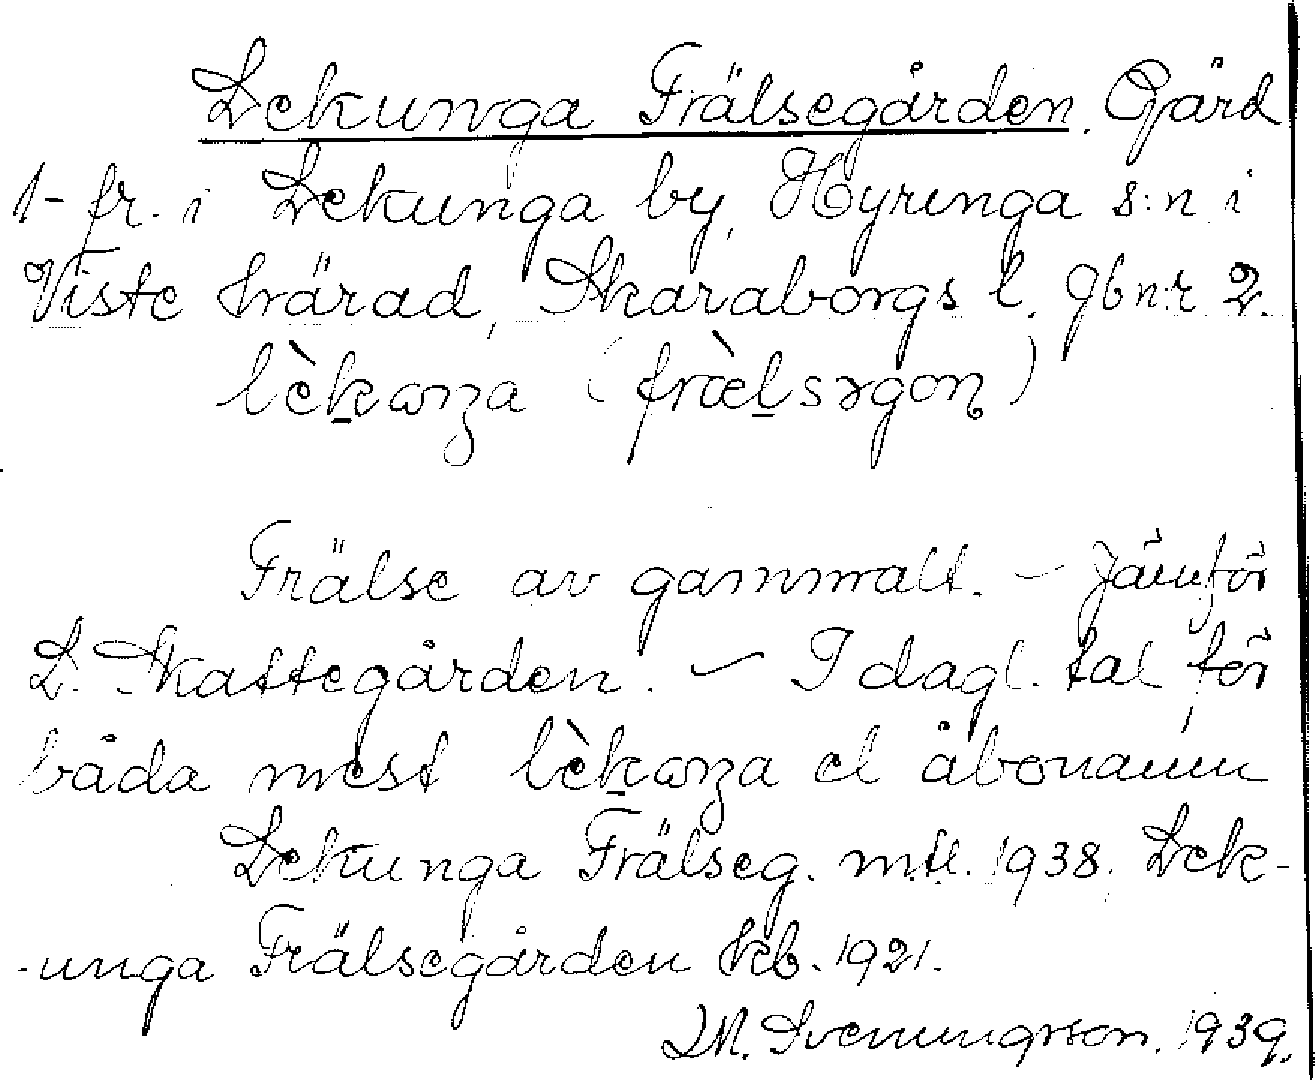 Lekunga Frälsegården. Gård
1- fr. i Lekunga by, Hyringa s:n i
Viste härad, Skaraborgs l. Jbnr 2.
lèkaŋa (frælsəgon)
Frälse av gammalt. – Jämför
L. Skattegården. – I dagl. tal för
båda mest lèkaŋa el åbonamn
Lekunga Frälseg. mtl. 1938. Lek-
-unga Frälsegården kb. 1921.
M. Svenungsson. 1939.